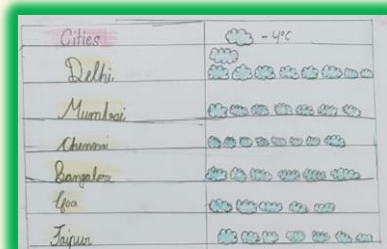 Cities - 4°C
Delhi
Mumbai
Chennai
Bangalore
Goa
Jaipur